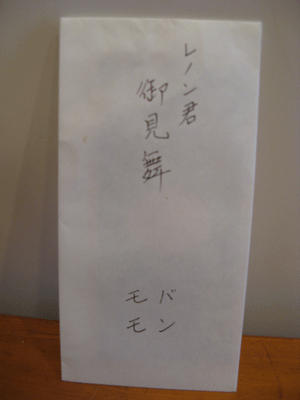 レノン君
御見舞
バン
モモ